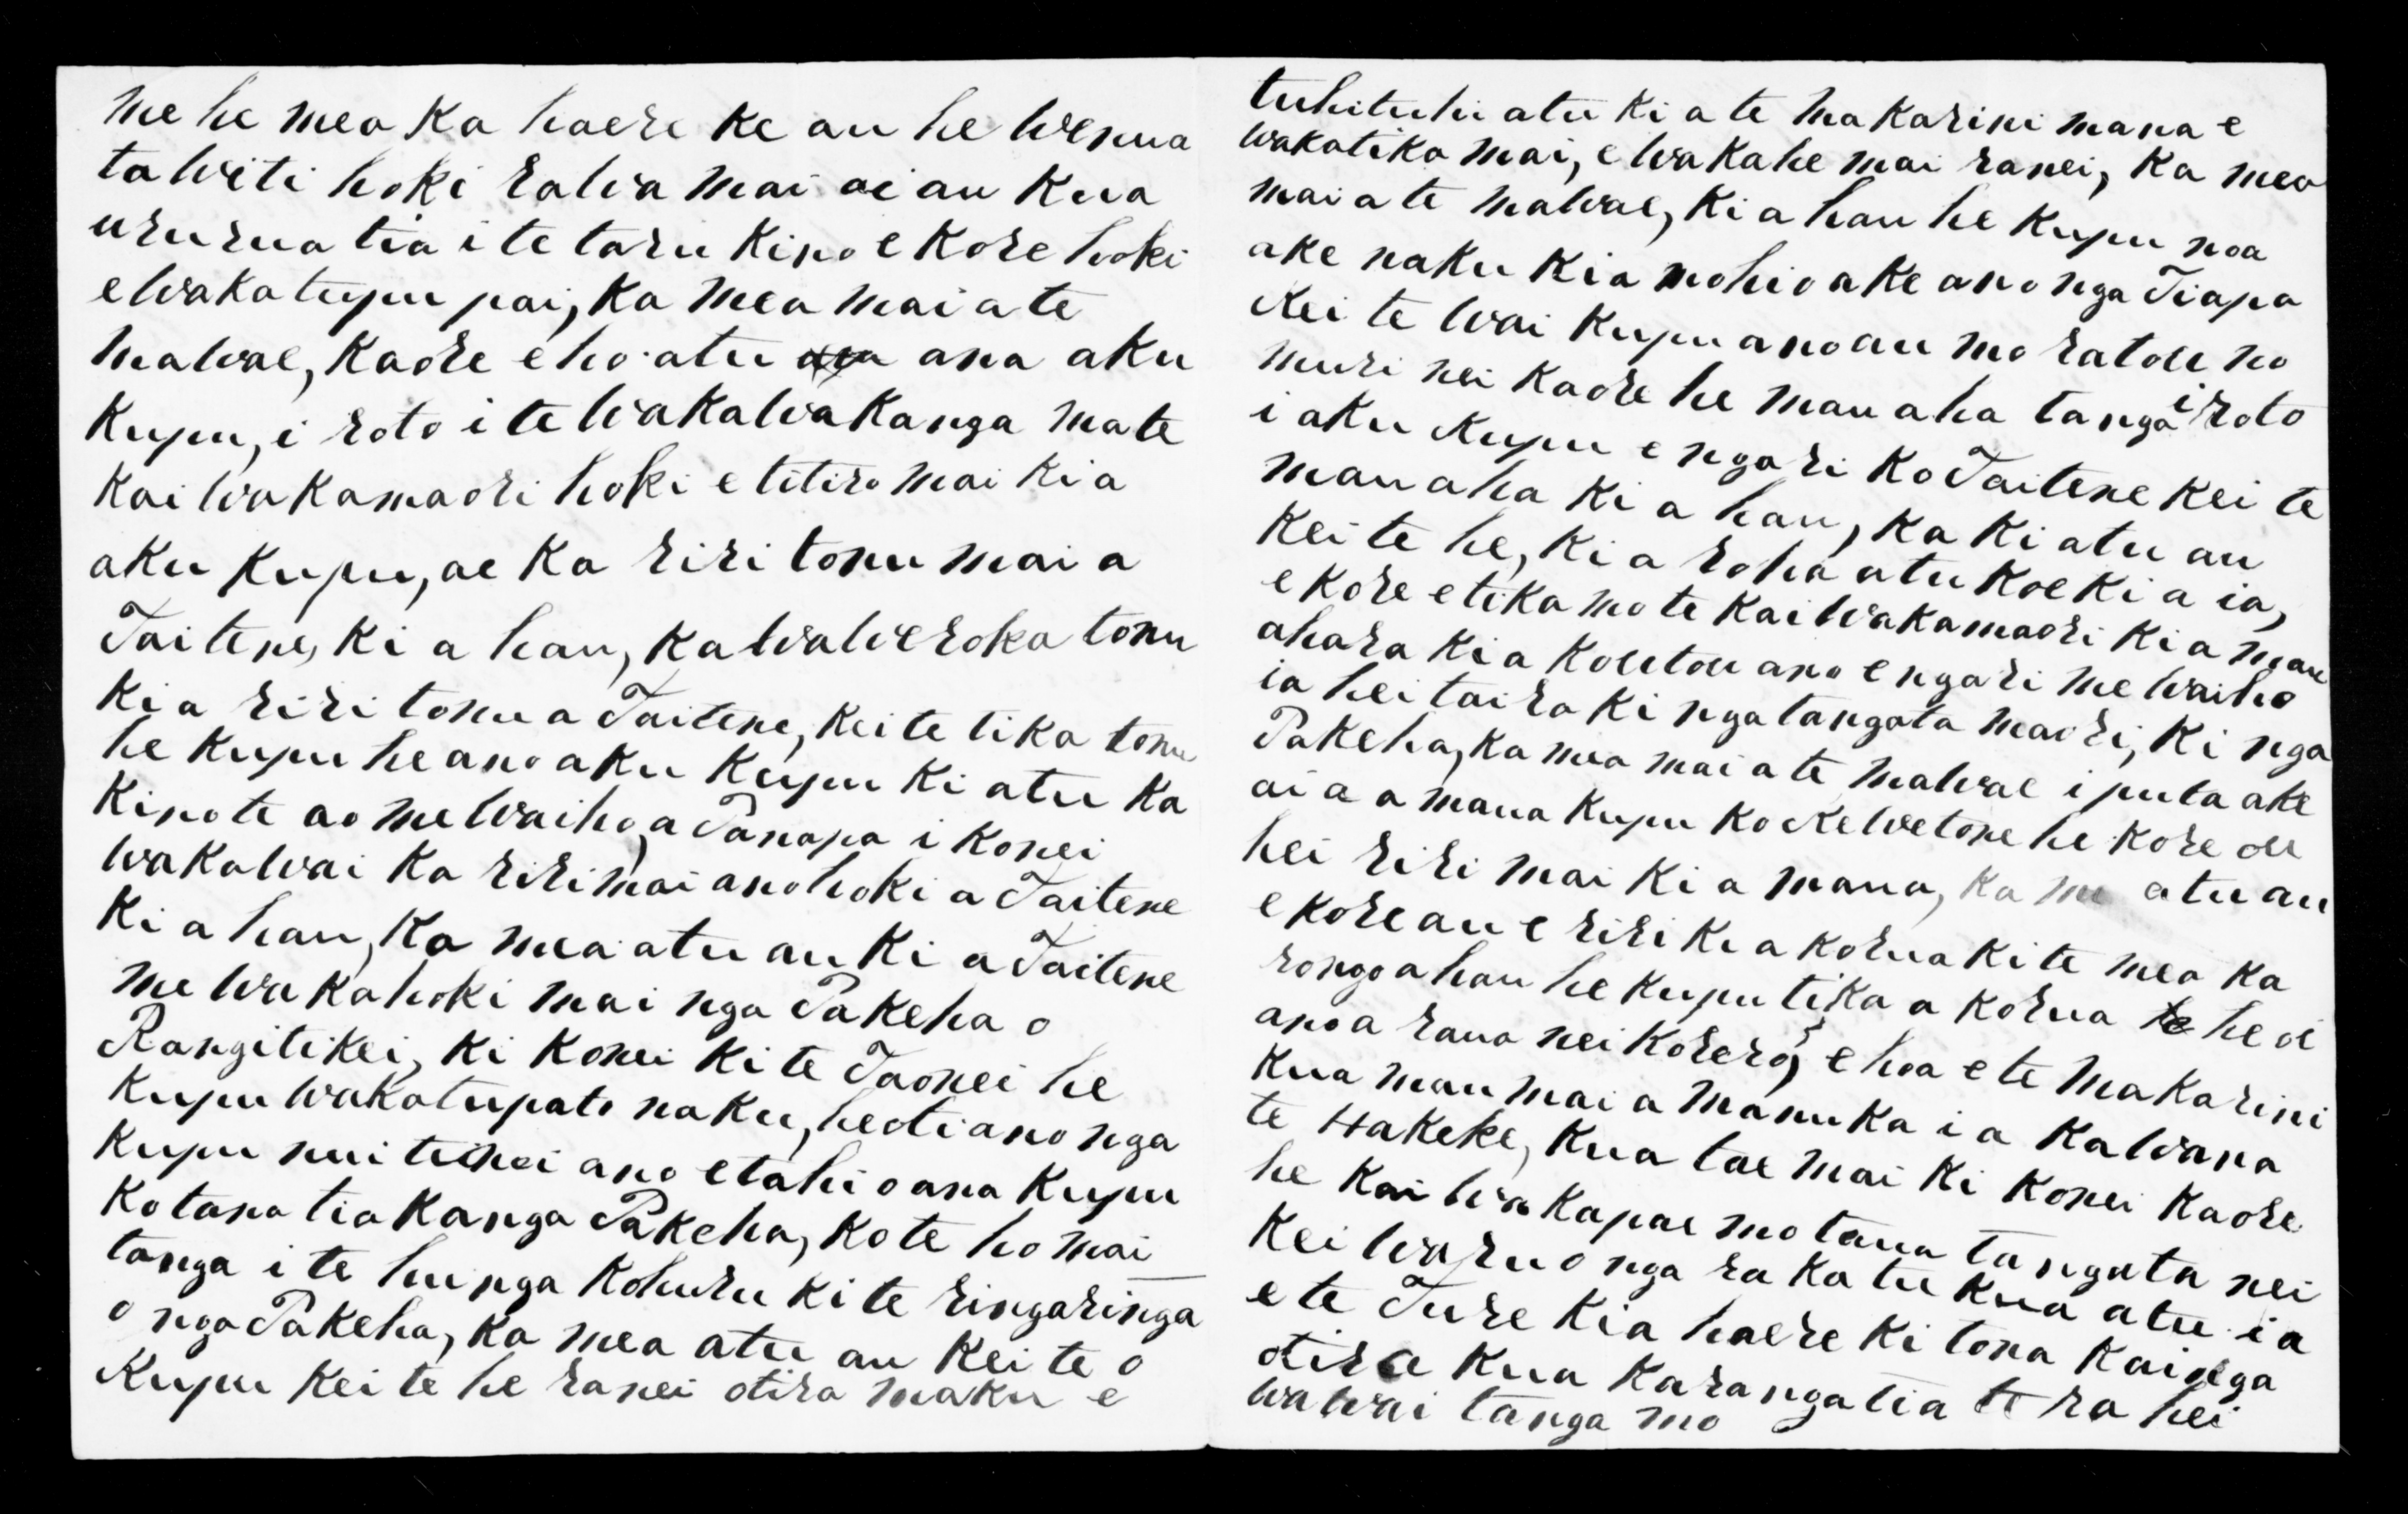 me he mea Ka haere Ke au he Wenua
tawiti hoki rawa mai ai au Kua
ururua tia i te taru Kino e Kore hoki
e Wakatupu pai, Ka mea mai a te
Mawae, Kaore e ho atu ana aku
Kupu, i roto i te WakaWaKanga ma te
Kai Wakamaori hoki e titiro mai Ki a
aku Kupu, ae Ka riri tonu mai a
Taitene, Ki a hau, Ka WaWe roKa tonu
Kia riri tonu a Taitene, Kei te tika tonu
he Kupu he ano aku Kupu Ki atu Ka
Kino te ao me Waiho, a Panapa i Konei
WakaWai Ka riri mai ano hoki a Taitene
Ki a hau, Ka mea atu au Ki a Taitene
me Wakahoki mai nga PaKeha o
Rangitikei, Ki Konei Ki te Taonei he
Kupu Wakatupato naku, heoti ano nga
Kupu nui tenei ano etahi o ana Kupu
Ko tana tia Kanga PaKeha, Ko te ho mai
tanga i te hunga Kohuru Ki te ringaringa
o nga PaKeha, Ka mea atu au Kei te o
Kupu Kei te he ranei otira maku e
tuhituhi atu Ki a te MaKarini mana e
WaKatika mai, e WaKahe mai ranei, Ka mea
mai a te MaWae, Ki a hau he Kupu noa
ake naKu Kia mohio aKe ano nga Tiapa
Kei te Wai Kupu ano au mo ratou no
muri nei Kaore he mau aha tanga i roto
i aku Kupu e ngari Ko Taitene Kei te
mau aha Ki a hau, Ka Ki atu au
Kei te he, Ki a roha atu Koe Ki a ia,
e Kore e tika mo te Kai WaKamaori Ki a mau
ahara Ki a Koutou ano e ngari me Waiho
ia hei taira Ki nga tangata maori, Ki nga
PaKeha, Ka mea mai a te MaWae i puta ake
ai a a maua Kupu Ko KeWetone he Kore ou
hei riri mai Ki a maua, Ka me atu au
e Kore au e riri Ki a Korua Ki te mea Ka
rongo ahau he Kupu tika a Korua he oi
ano a raua nei Korero, e hoa e te MaKarini
Kua mau mai a ManuKa i a KaWana
te HaKeKe, Kua tae mai Ki Konei Kaore
he Kai WaKapae mo taua tangata nei
Kei Waru o nga ra Ka tu Kua atu i a
e te Ture Kia haere Ki tona Kainga
otira Kua Karangatia te ra hei
WaWai tanga mo